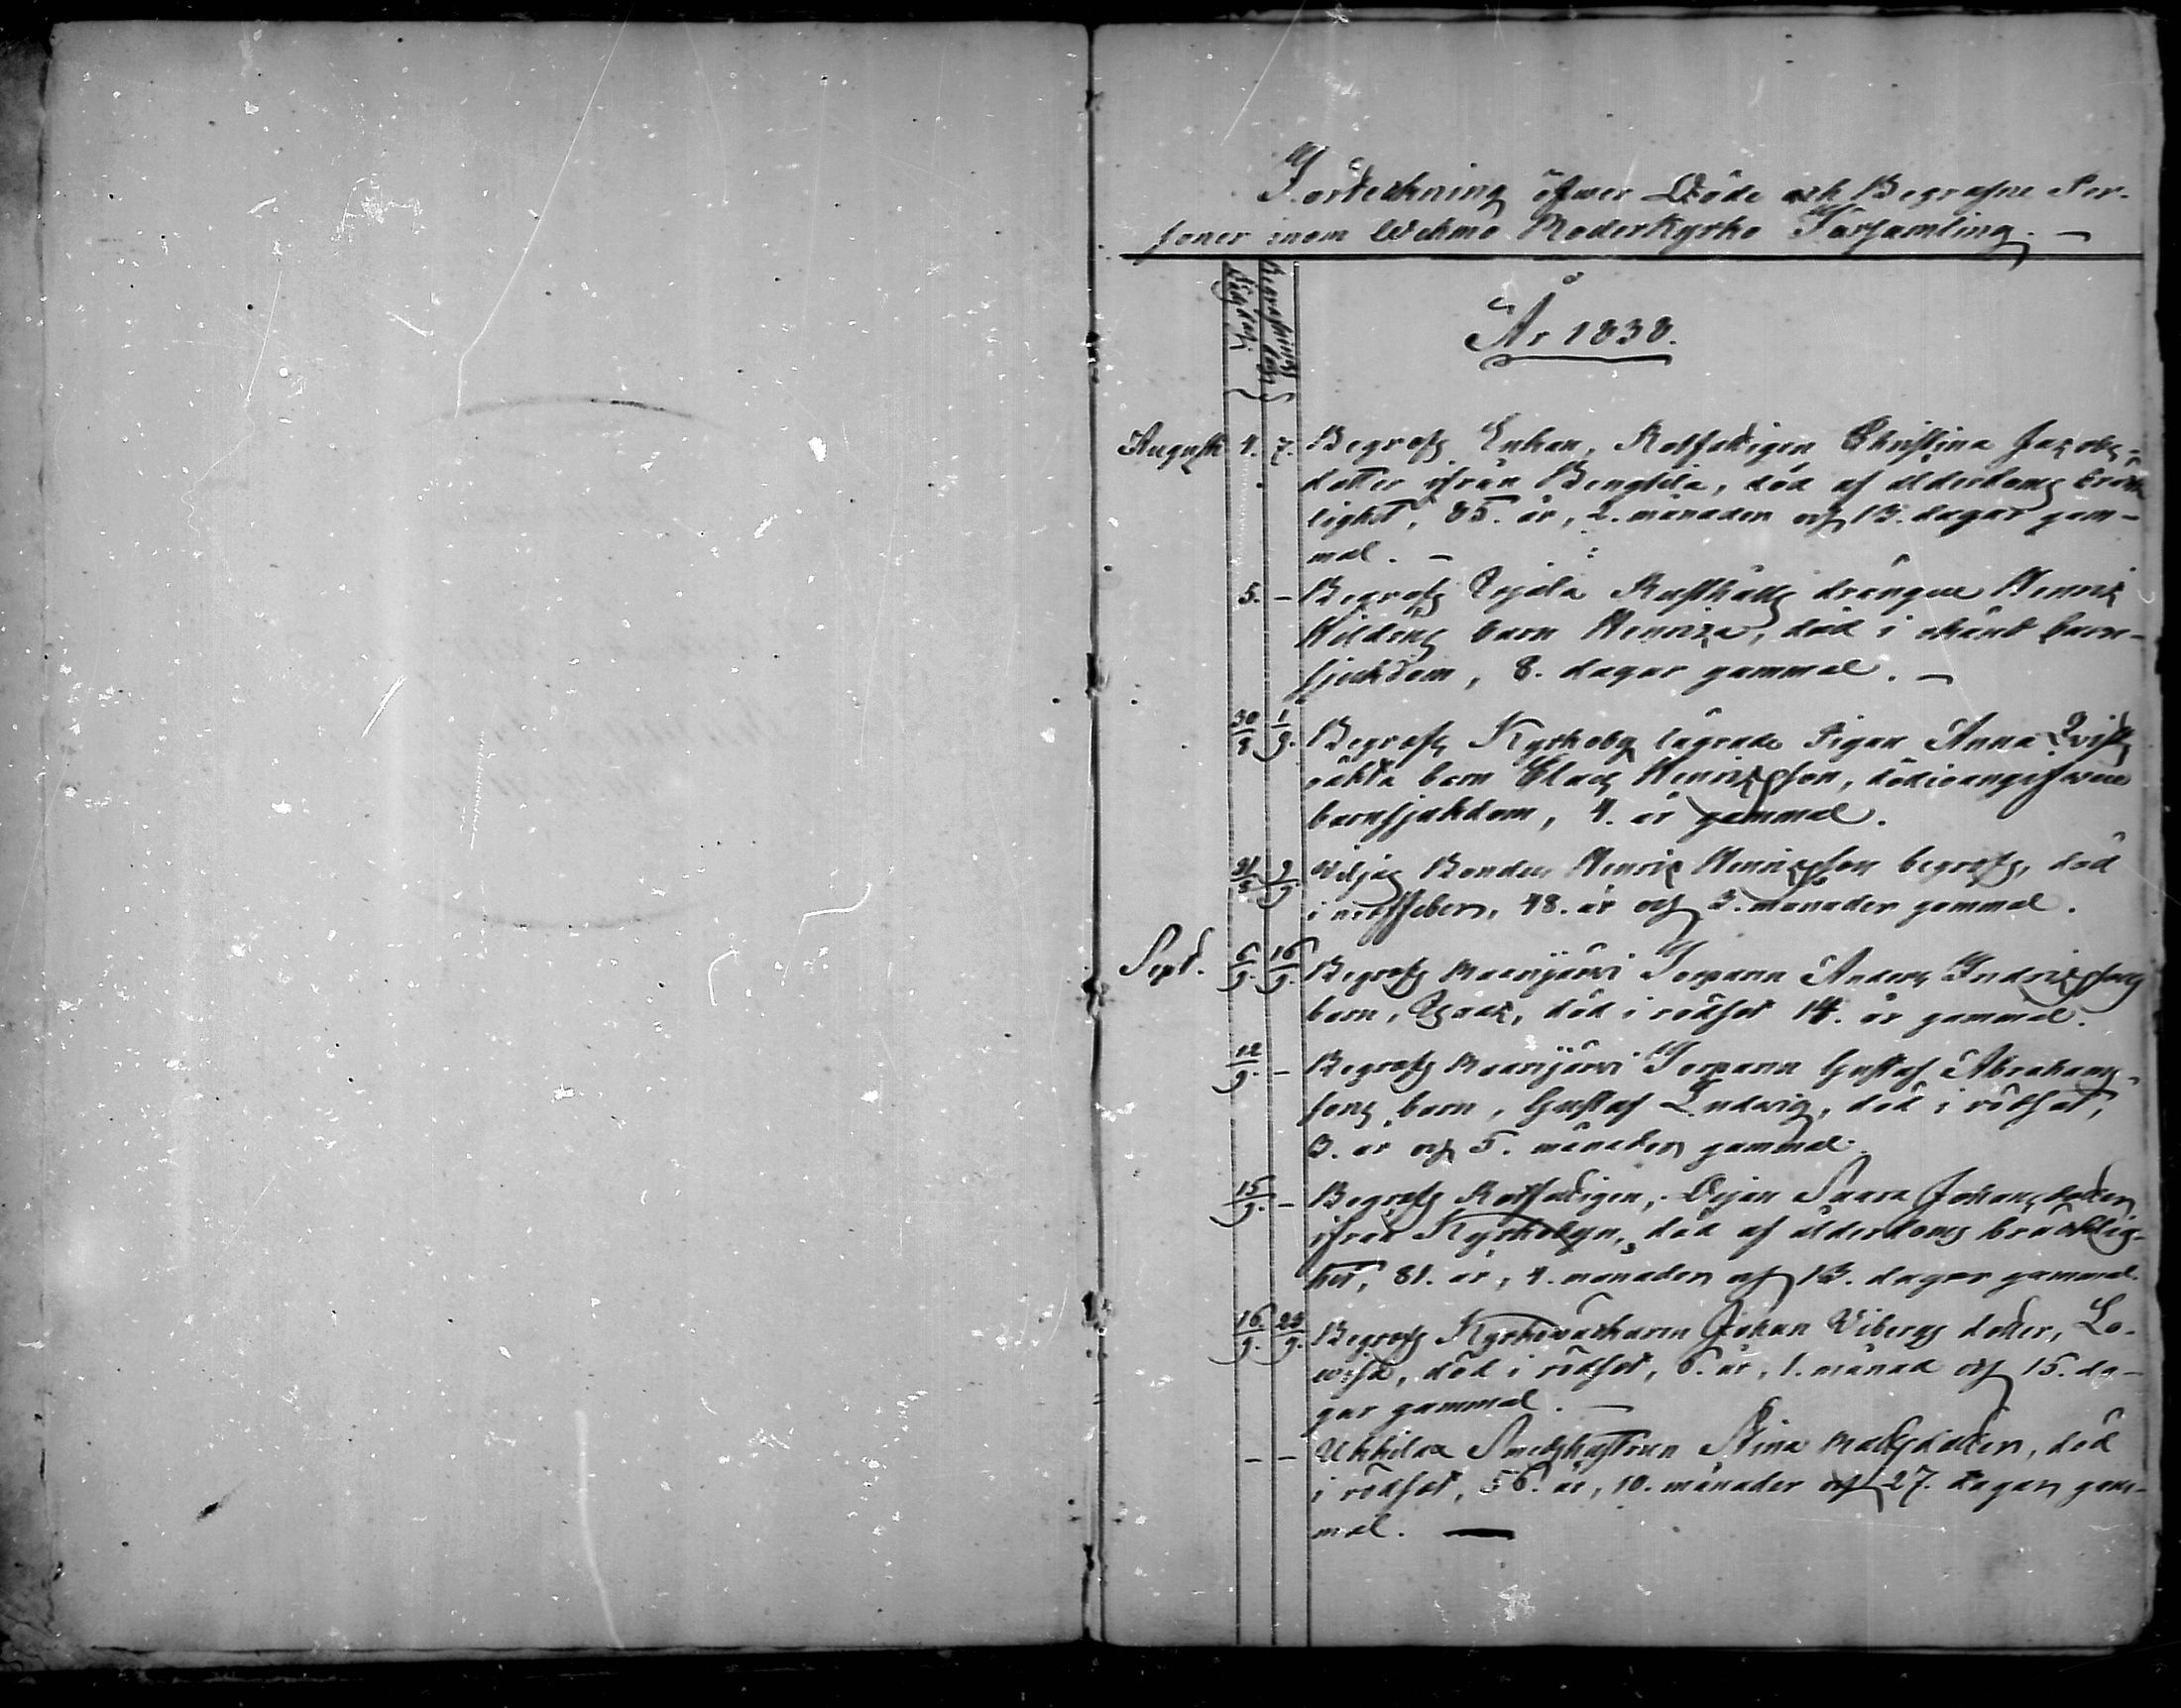 Förteckning öfwer Döde och Begrafne Per-
soner inom Wehmo Moderkyrko Församling. —
Dödsdag. Begrafnings dag
År 1838.
Augusti 4. 7. Begrofs Enkan, Rotfattigen Christina Jacobs-
dotter ifrån Bengtila, död af ålderdoms bräck
lighet, 85. år, 2. månader och 13. dagar gam-
mal. —
5. — Begrofs Rusthålls drängen Henric
barn Henrica, död i okänd barn-
sjuckdom, 8. dagar gammal. —
30/8 1/9. Begrofs Kyrkoby lägrade Pigan Anna Qvists
oäkta barn Claes Henricsson, död i oangifwen
barnsjukdom, 4. år gammal.
31/8 2/9. Bonden Henric Henricsson begrofs, död
i nervfeber, 48. år och 3. månader gammal.
Sept. 6/9. 16/9. Begrofs Maarijärwi Torparen Anders Indricssons
barn, Isaac, död i rödsot 14. år gammal.
12/9. — Begrofs Maarijärwi Torparen Gustaf Abrahams-
sons barn, Gustaf Ludwig, död i rödsot,
3. år och 5. månader gammal.
15/9. — Begrofs Rotfattigen, Pigan Saara Johansdotter
ifrån Kyrkobyn, död af ålderdoms bräcklig-
het, 81. år, 4. månader och 13. dagar gammal.
16/9. 23/9. Begrofs Kyrkowäktaren Johan Wibergs dotter, Lo-
wisa, död i rödsot, 6. år, 1. månad och 15. da-
gar gammal. —
— — Uhkila Smedshustrun Stina Matsdotter, död
i rödsot, 56. år, 10. månader och 27. dagar gam-
mal. —